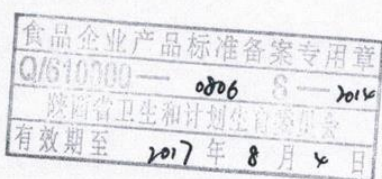 食品企业产品标准备案专用章
Q/610000— 0806 S—2014
陕西省卫生和计划生育委员会
有效期至 2017 年 8 月 4 日